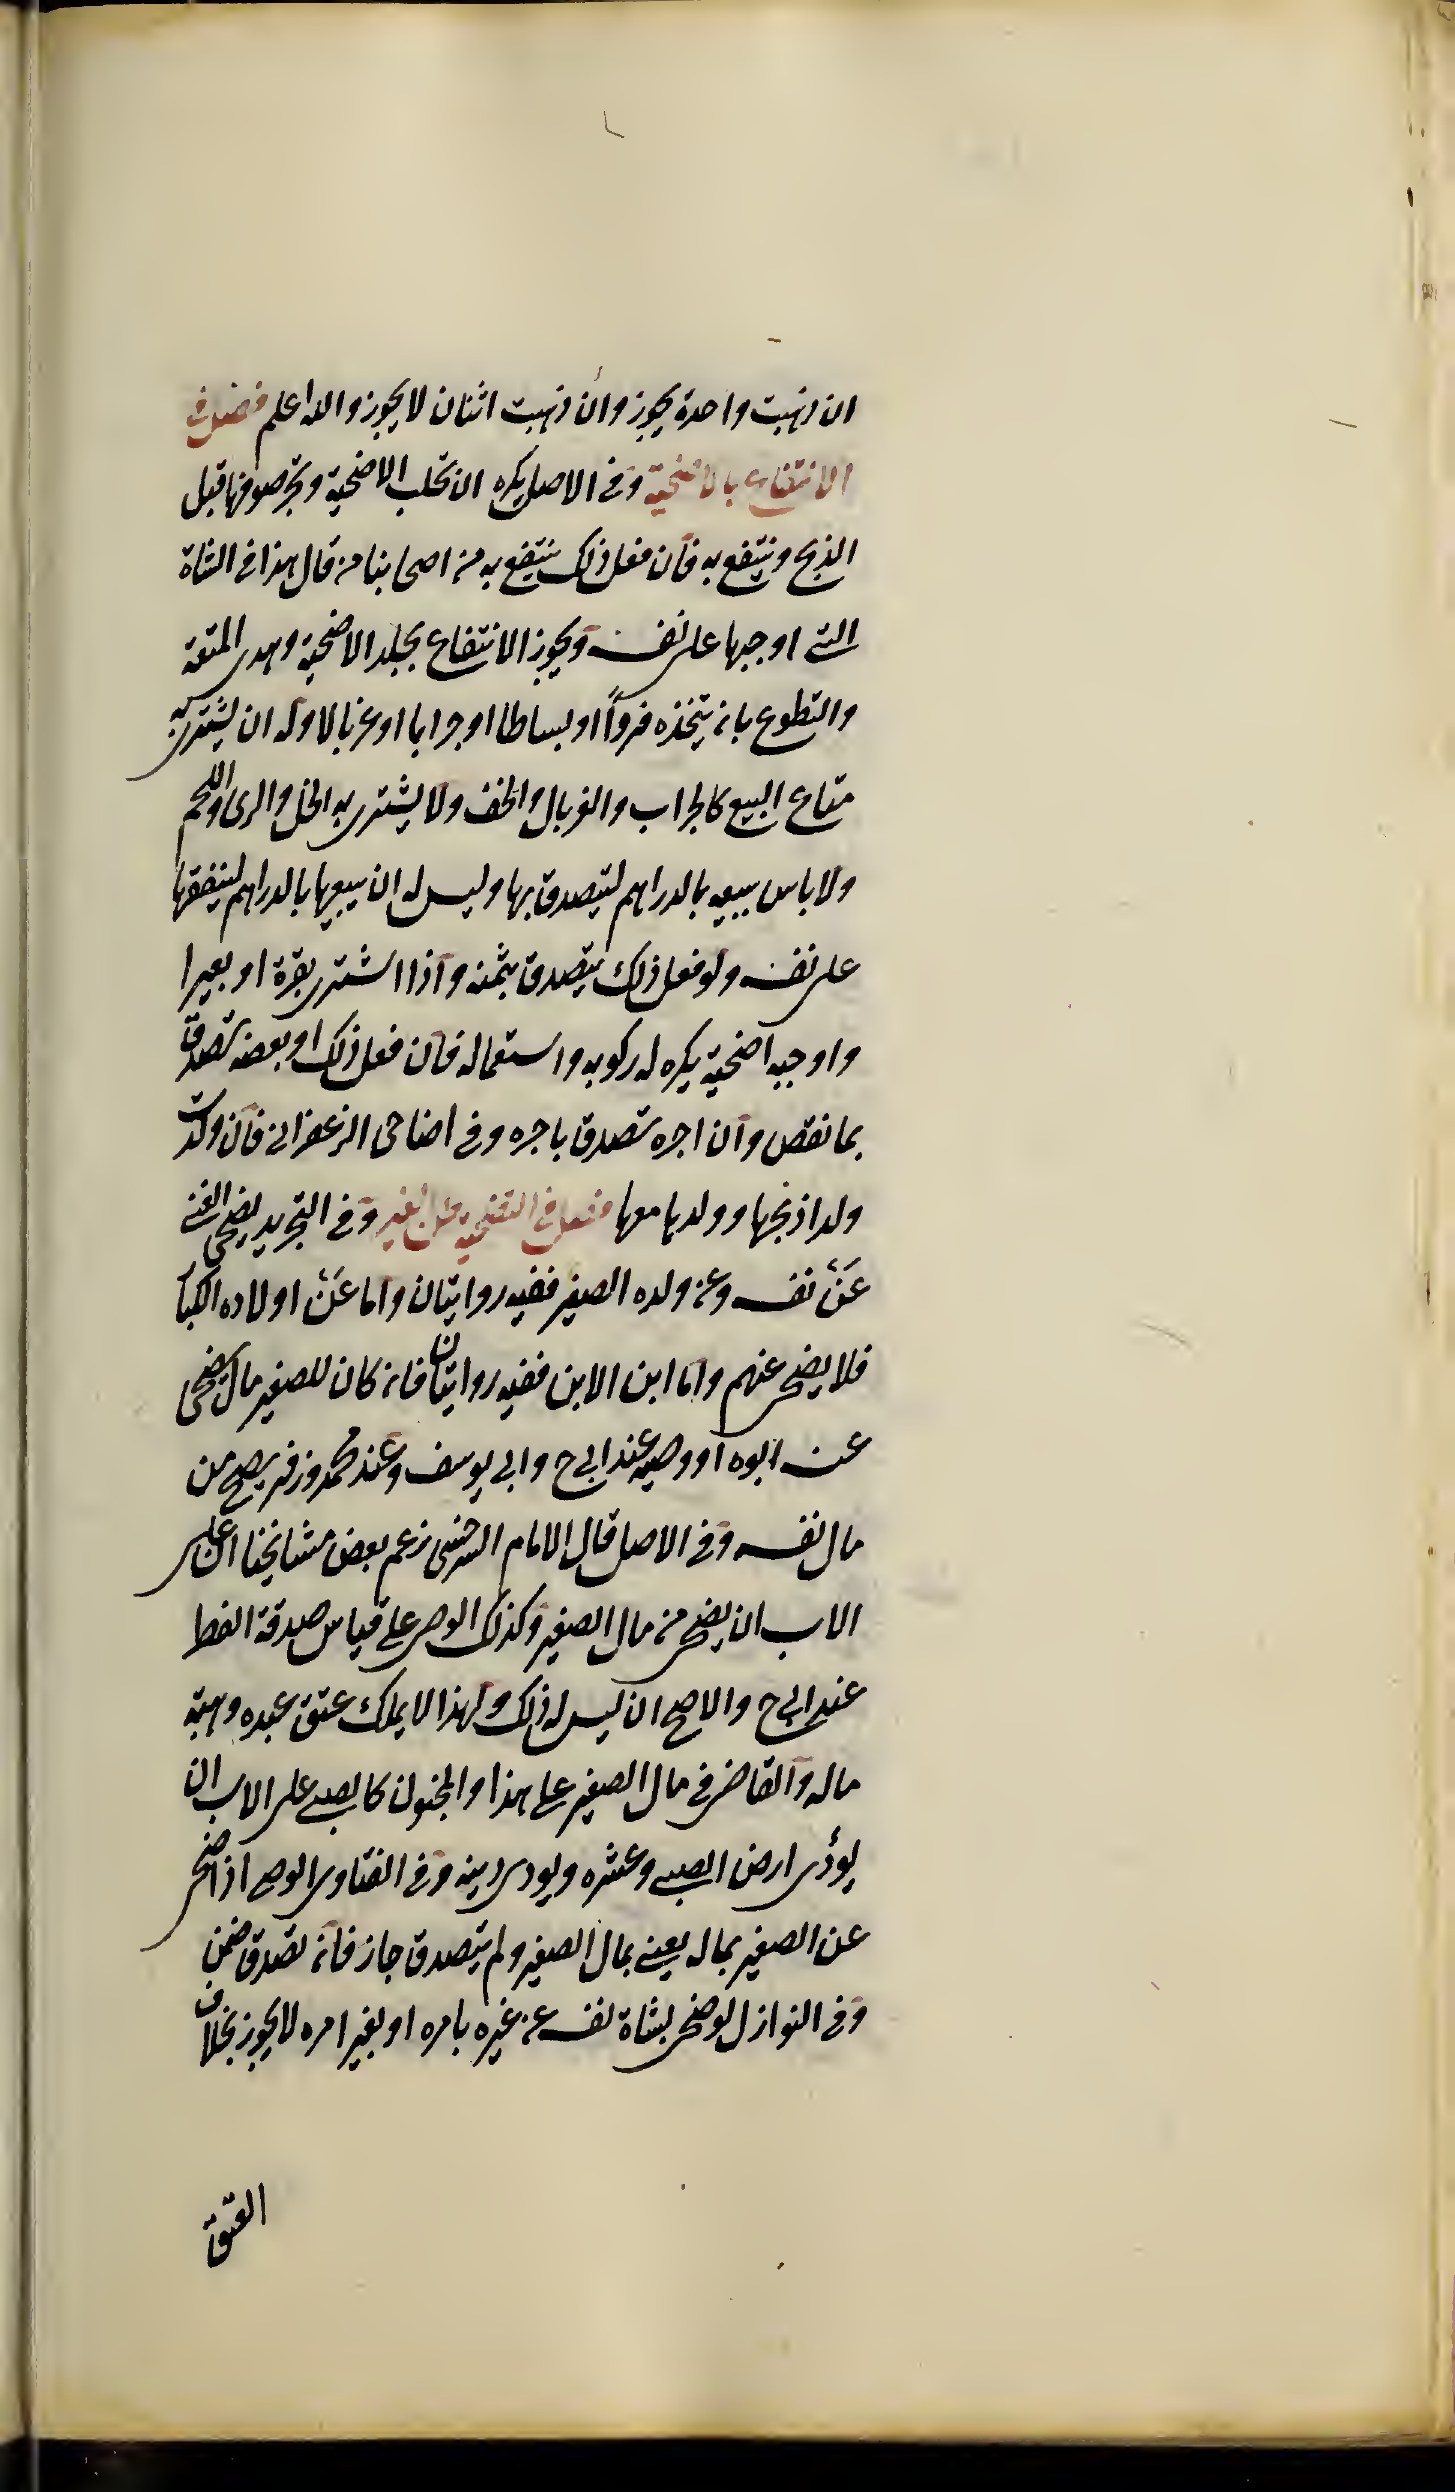 ان ذهبت واحدة يجوز وان ذهبت اثنان لا يجوز والله اعلم فصل في
الانتفاع بالاضحية وفي الاصل يكره ان تحلب الاضحية وتجز صوفها قبل
الذبح وينتفع به فان فعل ذلك ينتفع به من اصحابنا من قال هذا في الشاة
التي اوجبها على نفسه ويجوز الانتفاع بجلد الاضحية وهدى المتعة
والتطوع بان يتخذه فروا او بساطا او جرابا او غربالا وله ان يشترى به
متاع البيع كالجراب والغربال والخف ولا يشترى به الخل والمرى واللحم
ولا باس ببيعه بالدراهم ليتصدق بها وليس له ان يبيعها بالدراهم لينفقها
على نفسه ولو فعل ذلك يتصدق بثمنه واذا اشترى بقرة او بعيرا
واوجبه اضحية يكره له ركوبه واستعماله فان فعل ذلك او بعضه تصدق
بما نقص وان اجره تصدق باجره وفي اضاحى الزعفراني فان ولدت
ولدا ذبحها وولدها معها فصل في التضحية عن الغير وفي التجريد يضحى الغني
عن نفسه وعن ولده الصغير ففيه روايتان واما عن اولاده الكبا
فلا يضحى عنهم واما ابن الابن ففيه روايتان فان كان للصغير مال يضحى
عنه ابوه او وصيه عند ابي ح وابي يوسف وعند محمد وزفر يصح من
مال نفسه وفي الاصل قال الامام السرخسى زعم بعض مشايخنا ان على
الاب ان يضحى من مال الصغير وكذلك الوصى على قياس صدقة الفط
عند ابي ح والاصح ان ليس له ذلك ولهذا لا يملك عتق عبده وهبة
ماله والقاضى في مال الصغير على هذا والمجنون كالصبي على الاب ان
يؤدى ارض الصبي وعشره ويودى دينه وفي الفتاوى الوصي اذا ضحى
عن الصغير بماله يعني بمال الصغير ولم يتصدق جاز فان تصدق ضمن
وفي النوازل لو ضحى بشاة نفسه عن غيره بامره او بغير امره لا يجوز بخلاف
العتق